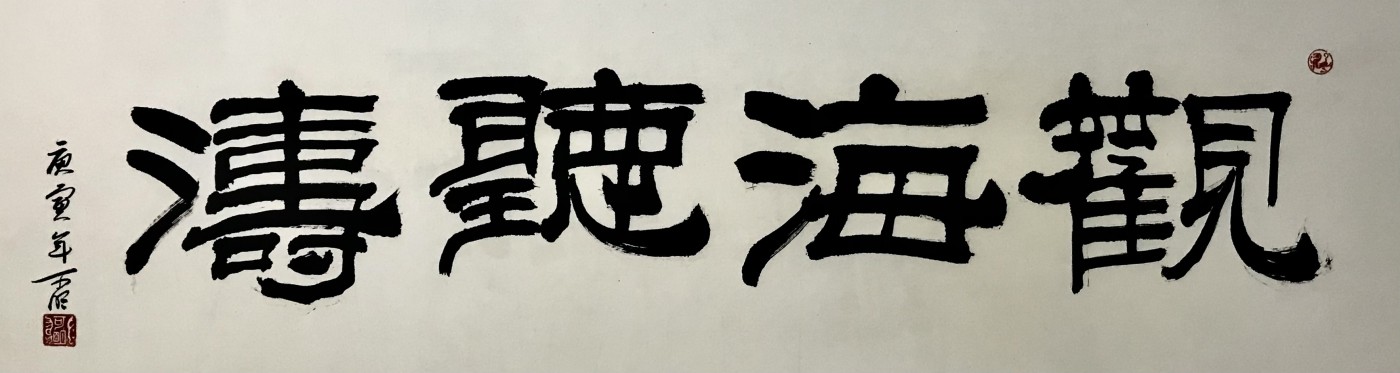 觀海聽濤
庚寅年